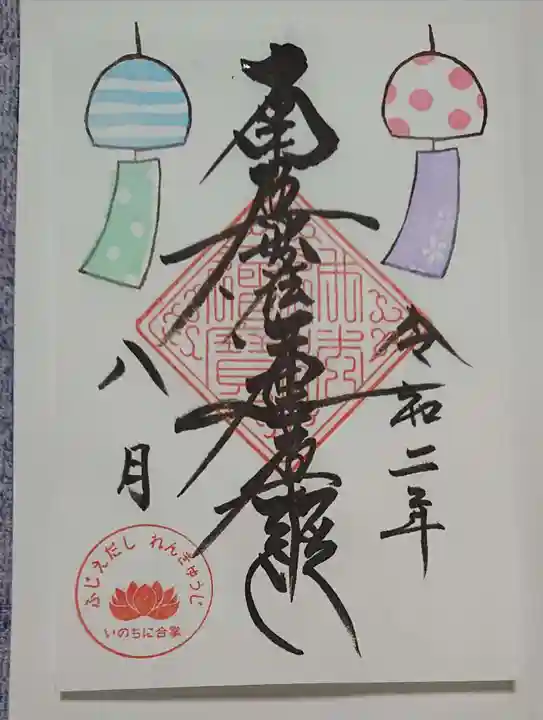 令和二年
南無妙法蓮華経
八月
ふじえだし れんぎゅうじ
いのちに合掌